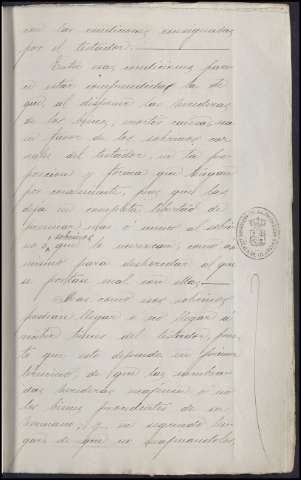 con las condiciones consignadas
por el testador.
Entre esas condiciones pare-
ce estar comprendida la de
que al disponer las herederas
de los bienes, mortis causa, sea
en favor de los sobrinos car-
nales del testador, en la pro-
porcion y forma que tengan
por conveniente, pues que las
deja en completa libertad de
favorecer mas ó menos al sobri-
no ó sobrinos que lo merezcan, como asi-
mismo para desheredar al que
se portare mal con ellas.
Mas como esos sobrinos
podian llegar ó no llegar á
obtener bienes del testador, pues-
to que esto dependia en primer
termino, de que las nombra-
das herederas no
los bienes procedentes de su
hermano, y en segundo lu-
gar de que no